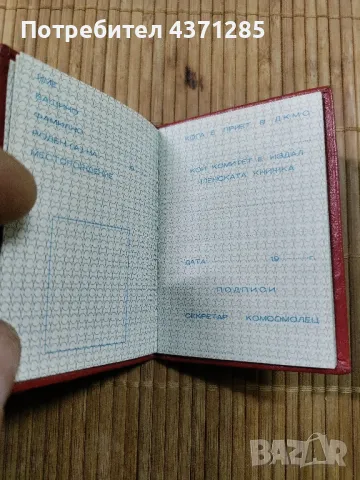 Потребител 4371285
ИМЕ
БАЩИНО
ФАМИЛНО
РОДЕН (А) НА
МЕСТОРОЖДЕНИЕ
КОГА Е ПРИЕТ В ДКМС
КОЙ КОМИТЕТ Е ИЗДАЛ
ЧЛЕНСКАТА КНИЖКА
ДАТА 19 Г.
ПОДПИСИ
СЕКРЕТАР КОМСОМОЛЕЦ
BAZAR